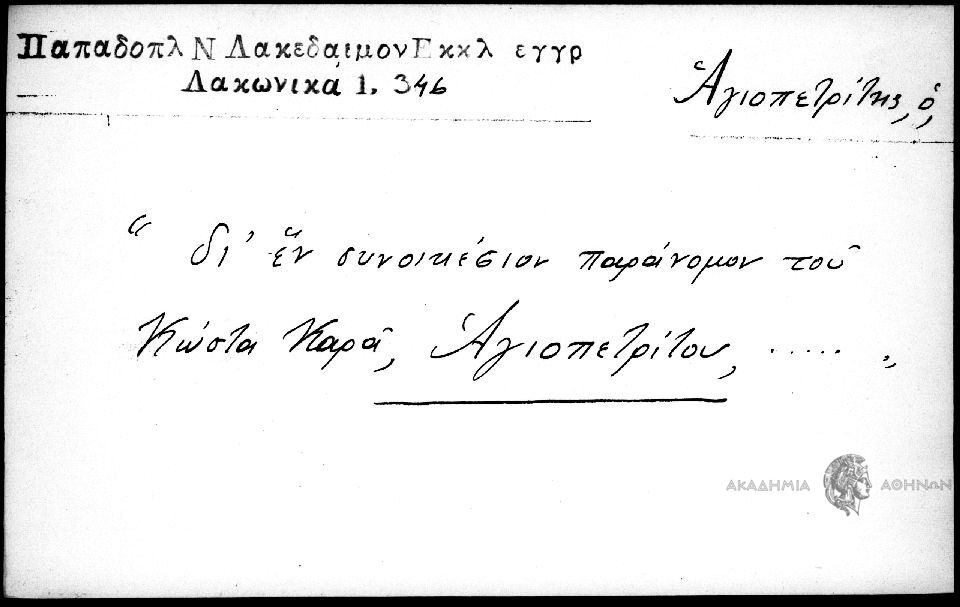 Παπαδοπλ Ν Λακεδαιμον Εκκλ εγγρ
Λακωνικά 1. 346
Ἁγιοπετρίτης, ὁ,
“ δι’ ἓν συνοικέσιον παράνομον τοῦ
Κώστα Καρᾶ, Ἁγιοπετρίτου, ..... „
ΑΚΑΔΗΜΙΑ ΑΘΗΝΩΝ